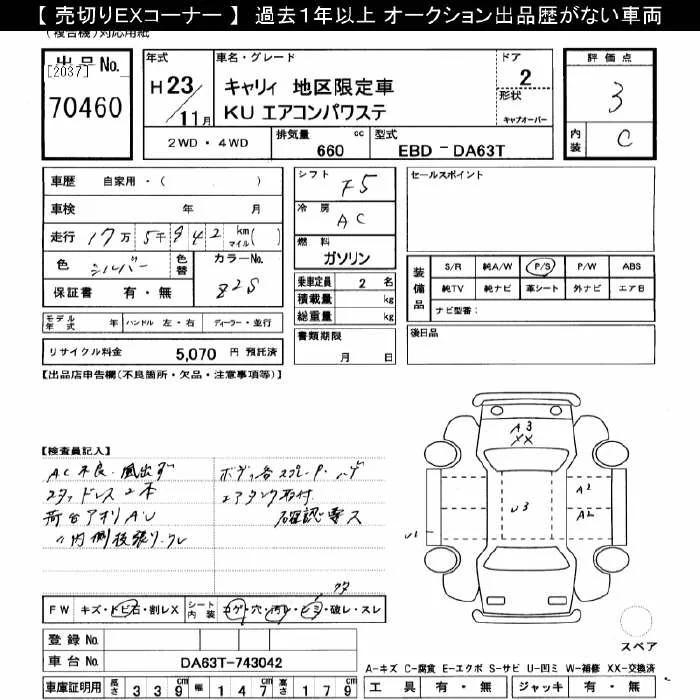 【 売切りEXコーナー 】 過去１年以上 オークション出品歴がない車両
(複合機)対応用紙
出品No.
[2037]
70460
年式
H23/11月
車名・グレード
キャリィ 地区限定車
KU エアコンパワステ
ドア
2
形状
キャブオーバー
評価点
3
内装
C
2WD・4WD
排気量 660 cc
型式 EBD-DA63T
車歴 自家用・( )
車検 年 月
走行 17万5千942 km マイル( )
色 シルバー
色替
カラーNo. Z2S
保証書 有・無
シフト F5
冷房 AC
燃料 ガソリン
乗車定員 2 名
積載量 kg
総重量 kg
セールスポイント
装備品
S/R 純A/W P/S P/W ABS
純TV 純ナビ 革シート 外ナビ エアB
ナビ型番:
モデル年式 年 ハンドル 左・右 ディーラー・並行
リサイクル料金 5,070 円 預託済
書類期限
月 日
後日品
【出品店申告欄(不良箇所・欠品・注意事項等)】
【検査員記入】
AC不良 風出ず
スタッドレス2本
荷台アオリAU
〃内側後張り
ボディ各
エアタンク取付
A3
XX
U3
U1
A2
A2
FW キズ・トビ石・割レX
シート内装 コゲ・穴・汚レ・シミ・破レ・スレ
登録No.
車台No. DA63T-743042
スペア
A-キズ C-腐食 E-エクボ S-サビ U-凹ミ W-補修 XX-交換済
車庫証明用 長さ 339cm 幅 147cm 高さ 179cm
工具 有・無 ジャッキ 有・無